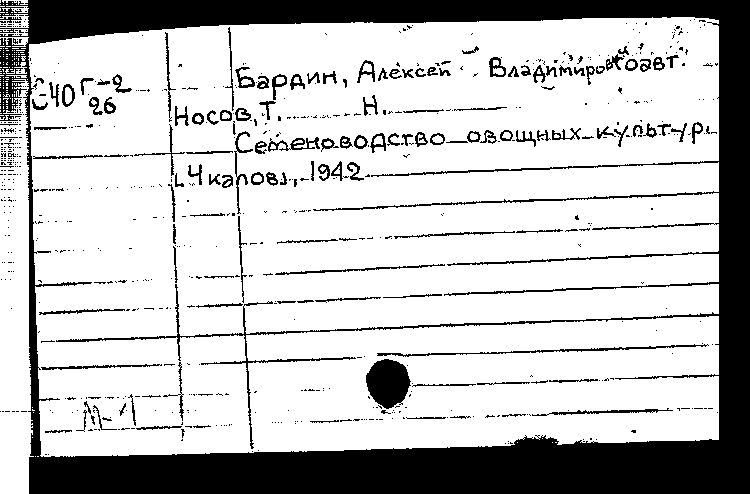 С40 Г-2
26
Бардин, Алексей Владимирович соавт.
Носов, Т. Н.
Семеноводство овощных культур.
[Чкалов], 1942